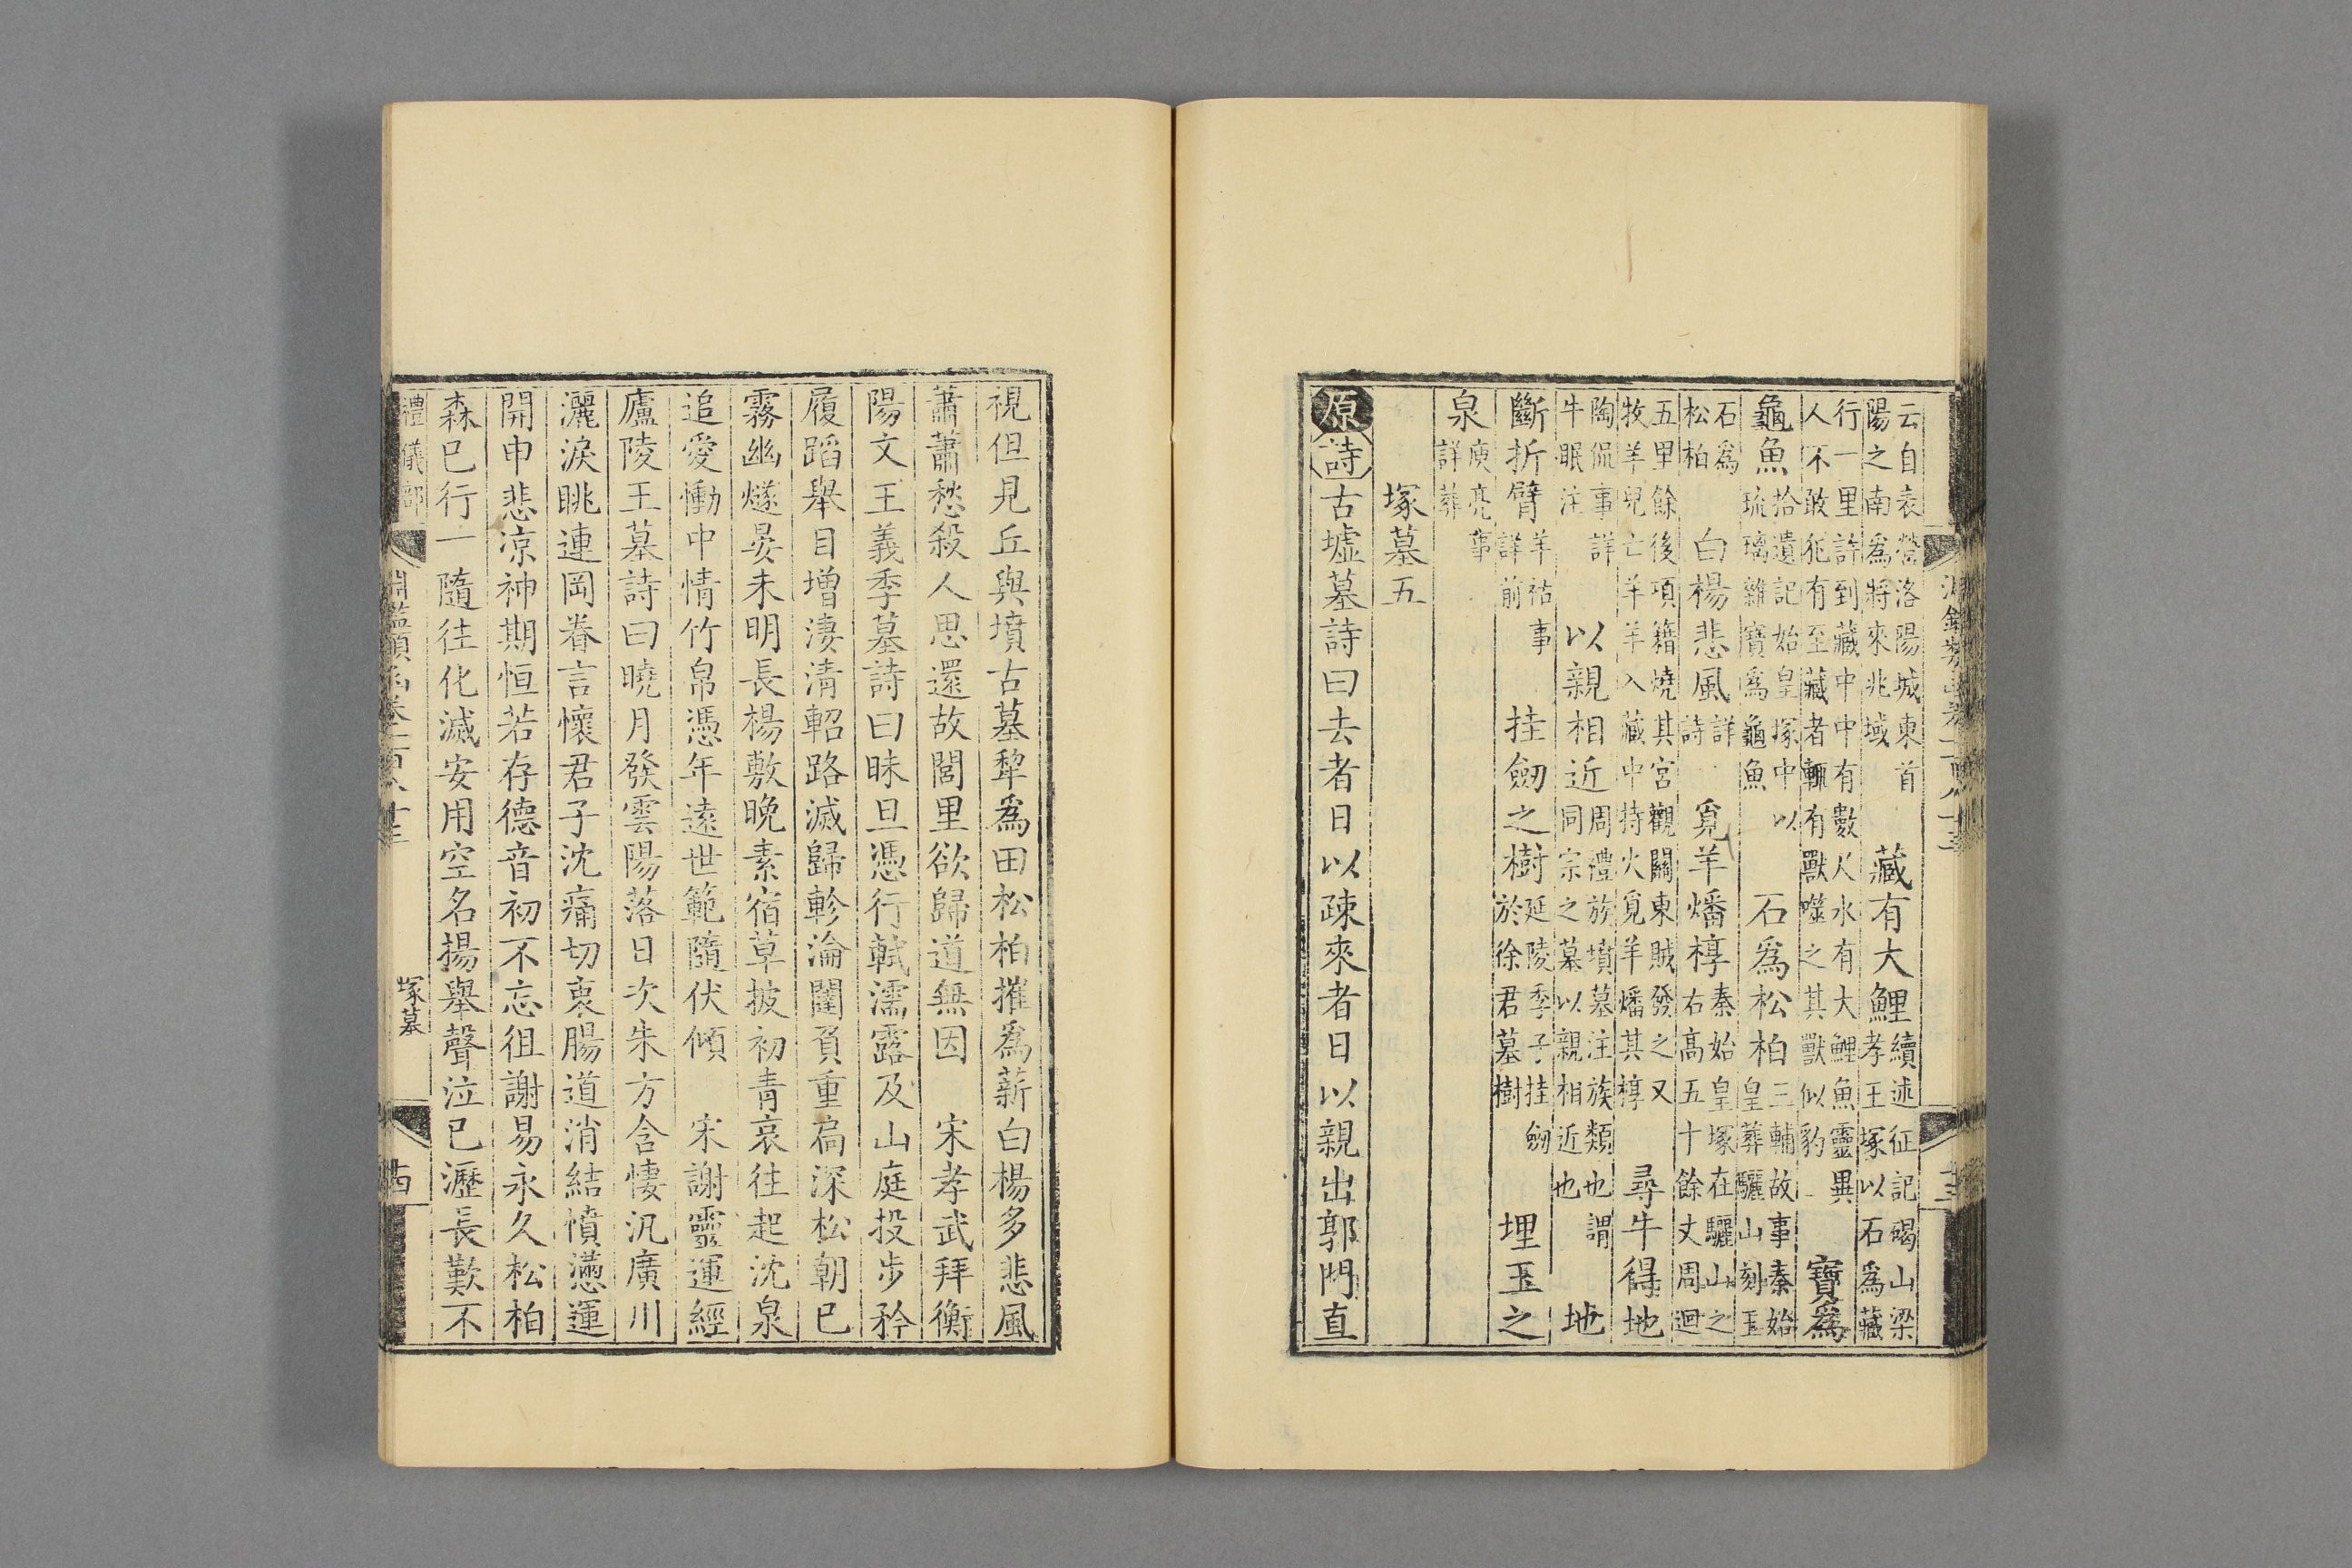 云自表營洛陽城東首
陽之南爲將來兆域
藏有大鯉
續述征記碭山梁
孝王塚以石爲藏
行一里許到藏中中有數人水有大鯉魚靈異
人不敢犯有至藏者輒有獸噬之其獸似豹
寶爲
龜魚
拾遺記始皇塚中以
琉璃雜寶爲龜魚
石爲松柏
三輔故事秦始
皇葬驪山刻玉
石爲
松柏
白楊悲風
詳
詩
覓羊燔椁
秦始皇塚在驪山之
右高五十餘丈周迴
五里餘後項籍燒其宮觀關東賊發之又
牧羊兒亡羊羊入藏中持火覓羊燔其椁
尋牛得地
陶侃事詳
牛眠注
以親相近
周禮族墳墓注族類也謂
同宗之墓以親相近也
地
斷折臂
羊祜事
詳前
挂劒之樹
延陵季子挂劒
於徐君墓樹
埋玉之
泉
庾亮事
詳葬
塚墓五
原詩古墟墓詩曰去者日以疎來者日以親出郭門直
視但見丘與墳古墓犂爲田松柏摧爲薪白楊多悲風
蕭蕭愁殺人思還故閭里欲歸道無因　宋孝武拜衡
陽文王義季墓詩曰昧旦憑行軾濡露及山庭投步矜
履蹈舉目增凄清軺路滅歸軫淪闥負重扃深松朝已
霧幽燧晏未明長楊敷晚素宿草披初青哀往起沈泉
追愛慟中情竹帛憑年遠世範隨伏傾　宋謝靈運經
廬陵王墓詩曰曉月發雲陽落日次朱方含悽汎廣川
灑淚眺連岡眷言懷君子沈痛切衷腸道消結憤懣運
開申悲凉神期恒若存德音初不忘徂謝易永久松柏
森已行一隨往化滅安用空名揚舉聲泣已瀝長歎不
禮儀部
淵鑑類函卷一百八十三
塚墓
古